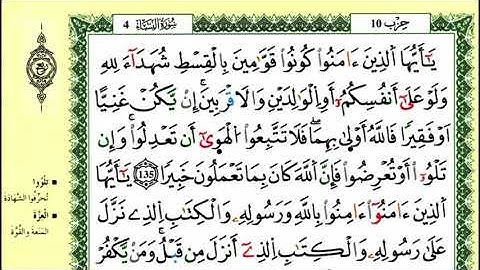 حزب 10
سُورَةُ النِّسَاء 4
يَٰٓأَيُّهَا ٱلذِينَ ءَامَنُوا۟ كُونُوا۟ قَوَّٰمِينَ بِالْقِسْطِ شُهَدَآءَ لِلهِ
وَلَوْ عَلَىٰٓ أَنفُسِكُمُۥٓ أَوِ اِ۬لْوَٰلِدَيْنِ وَالَاقْرَبِينَۖ إِنْ يَّكُنْ غَنِيًّا
اَوْ فَقِيرًا فَاللَّهُ أَوْلَىٰ بِهِمَاۖ فَلَا تَتَّبِعُوا۟ اُ۬لْهَوَىٰٓ أَن تَعْدِلُوا۟ۖ وَإِن
تَلْوُۥٓا۟ أَوْ تُعْرِضُوا۟ فَإِنَّ اَ۬للَّهَ كَانَ بِمَا تَعْمَلُونَ خَبِيرًاۖ 135 يَٰٓأَيُّهَا
اَ۬لذِينَ ءَامَنُوٓا۟ ءَامِنُوا۟ بِاللَّهِ وَرَسُولِهِۦ وَالْكِتَٰبِ اِ۬لذِے نَزَّلَ
عَلَىٰ رَسُولِهِۦ وَالْكِتَٰبِ اِ۬لذِےٓ أَنزَلَ مِن قَبْلُۖ وَمَنْ يَّكْفُرْ
تَلْوُوا
تُحرِّفوا الشَّهادَةَ
العِزَّة
المَنَعَةَ والقُوَّةَ